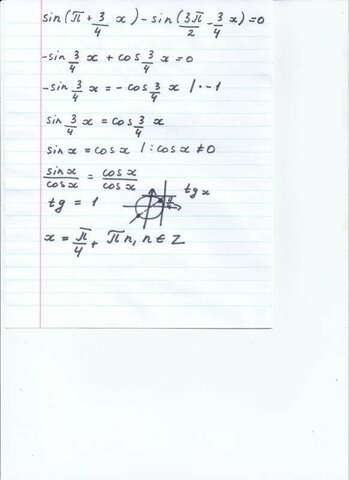 sin(π + 3/4 x) - sin(3π/2 - 3/4 x) = 0
-sin 3/4 x + cos 3/4 x = 0
-sin 3/4 x = -cos 3/4 x | · -1
sin 3/4 x = cos 3/4 x
sin x = cos x | : cos x ≠ 0
sin x / cos x = cos x / cos x
tg = 1 tg x
x = π/4 + πn, n ∈ Z